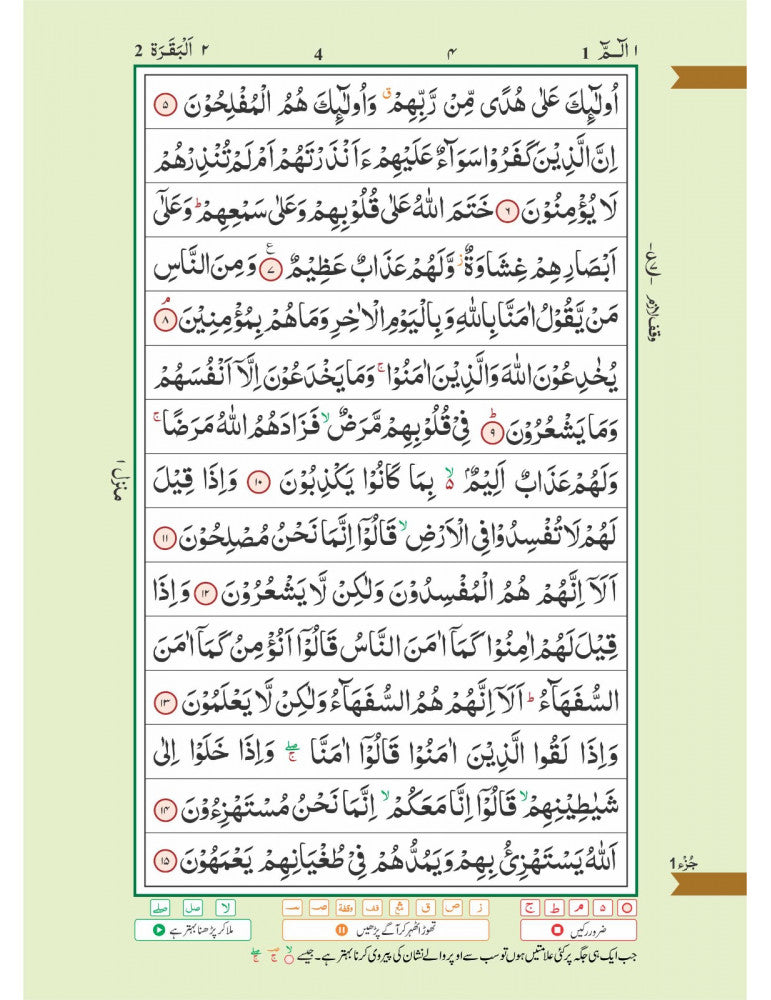 ۱ الٓـمّٓ 1 ۴ 4 ۲ اَلْبَقَرَة 2
اُولٰٓئِكَ عَلٰى هُدًى مِّنْ رَّبِّهِمْ ۛق وَاُولٰٓئِكَ هُمُ الْمُفْلِحُوْنَ ۵
اِنَّ الَّذِيْنَ كَفَرُوْا سَوَآءٌ عَلَيْهِمْ ءَاَنْذَرْتَهُمْ اَمْ لَمْ تُنْذِرْهُمْ
لَا يُؤْمِنُوْنَ ۶ خَتَمَ اللّٰهُ عَلٰى قُلُوْبِهِمْ وَعَلٰى سَمْعِهِمْ ؕ وَعَلٰٓى
اَبْصَارِهِمْ غِشَاوَةٌ ز وَّلَهُمْ عَذَابٌ عَظِيْمٌ ۷ ع وَمِنَ النَّاسِ
مَنْ يَّقُوْلُ اٰمَنَّا بِاللّٰهِ وَبِالْيَوْمِ الْاٰخِرِ وَمَا هُمْ بِمُؤْمِنِيْنَ ۘ ۸
يُخٰدِعُوْنَ اللّٰهَ وَالَّذِيْنَ اٰمَنُوْا ۚ وَمَا يَخْدَعُوْنَ اِلَّآ اَنْفُسَهُمْ
وَمَا يَشْعُرُوْنَ ؕ ۹ فِيْ قُلُوْبِهِمْ مَّرَضٌ ۙ فَزَادَهُمُ اللّٰهُ مَرَضًا ۚ
وَلَهُمْ عَذَابٌ اَلِيْمٌ ۢ ۵ ۙ بِمَا كَانُوْا يَكْذِبُوْنَ ۱۰ وَاِذَا قِيْلَ
لَهُمْ لَا تُفْسِدُوْا فِي الْاَرْضِ ۙ قَالُوْٓا اِنَّمَا نَحْنُ مُصْلِحُوْنَ ۱۱
اَلَآ اِنَّهُمْ هُمُ الْمُفْسِدُوْنَ وَلٰكِنْ لَّا يَشْعُرُوْنَ ۱۲ وَاِذَا
قِيْلَ لَهُمْ اٰمِنُوْا كَمَآ اٰمَنَ النَّاسُ قَالُوْٓا اَنُؤْمِنُ كَمَآ اٰمَنَ
السُّفَهَآءُ ؕ اَلَآ اِنَّهُمْ هُمُ السُّفَهَآءُ وَلٰكِنْ لَّا يَعْلَمُوْنَ ۱۳
وَاِذَا لَقُوا الَّذِيْنَ اٰمَنُوْا قَالُوْٓا اٰمَنَّا ۚ ۖ وَاِذَا خَلَوْا اِلٰى
شَيٰطِيْنِهِمْ ۙ قَالُوْٓا اِنَّا مَعَكُمْ ۙ اِنَّمَا نَحْنُ مُسْتَهْزِءُوْنَ ۱۴
اَللّٰهُ يَسْتَهْزِئُ بِهِمْ وَيَمُدُّهُمْ فِيْ طُغْيَانِهِمْ يَعْمَهُوْنَ ۱۵
ع ۷
وقف لازم
منزل ۱
جُزْء 1
○ ۵ م ط ج ز ص ق قف وقفة صـ سـ لا صل صلے
ضرور رکیں تھوڑا ٹھہر کر آگے پڑھیں ملا کر پڑھنا بہتر ہے
جب ایک ہی جگہ پر کئی علامتیں ہوں تو سب سے اوپر والے نشان کی پیروی کرنا بہتر ہے۔ جیسے